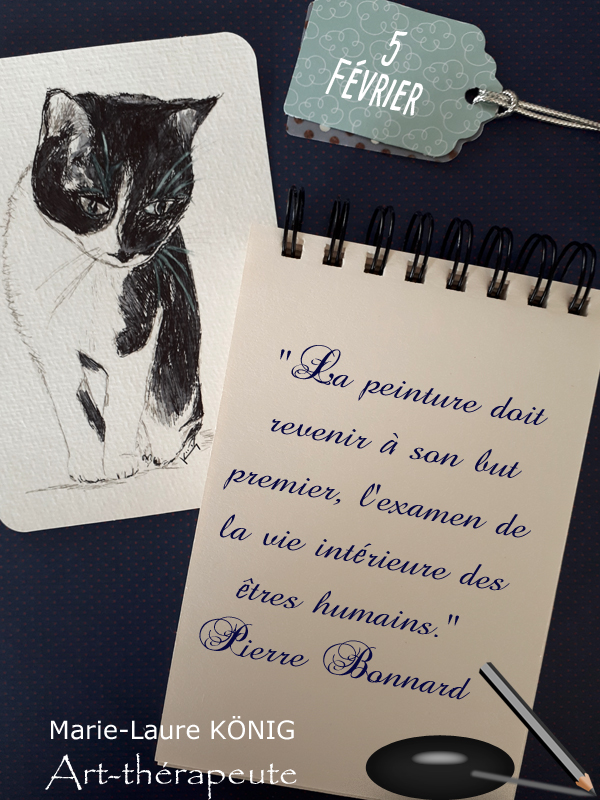 5
FÉVRIER
"La peinture doit
revenir à son but
premier, l'examen de
la vie intérieure des
êtres humains."
Pierre Bonnard
Marie-Laure KÖNIG
Art-thérapeute